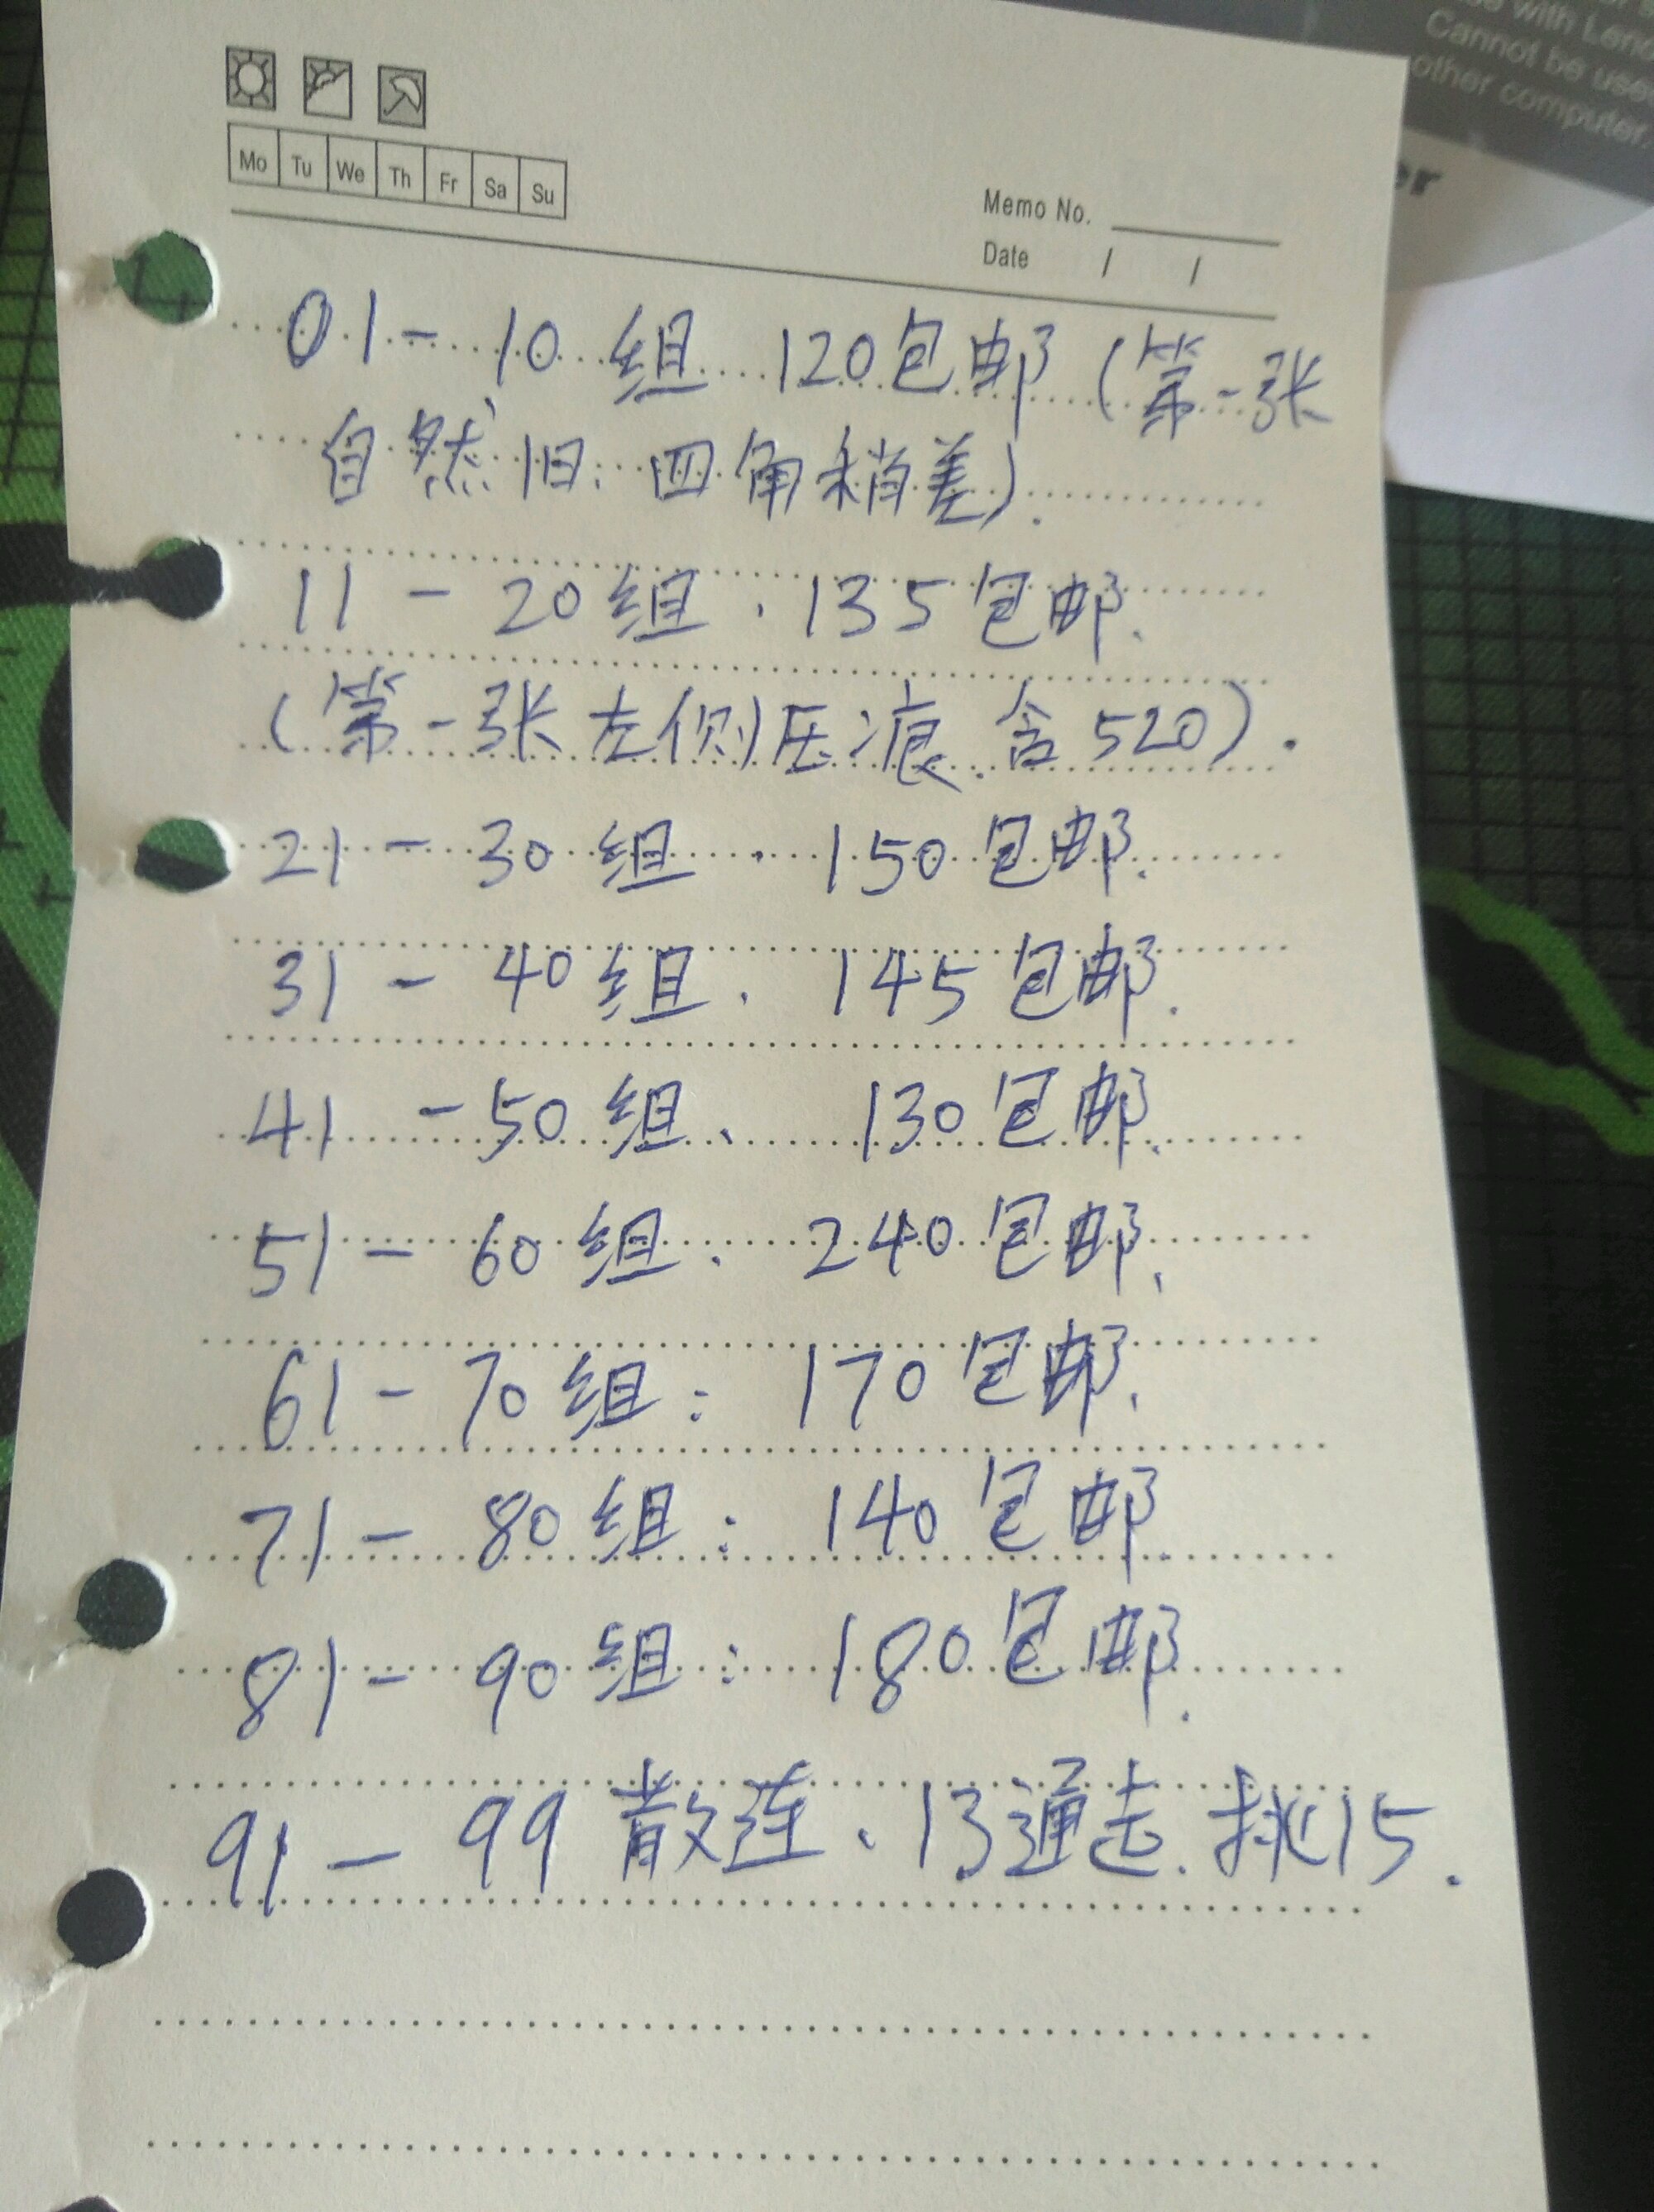 with Leno
Cannot be used
other computer.
er
Mo Tu We Th Fr Sa Su
Memo No.
Date / /
01-10组 120包邮(第一张
自然旧:四角稍差).
11-20组.135包邮.
(第一张左侧压痕.含520).
21-30组.150包邮.
31-40组.145包邮.
41-50组、130包邮.
51-60组.240包邮.
61-70组:170包邮.
71-80组:140包邮.
81-90组:180包邮.
91-99散连、13通走.挑15.